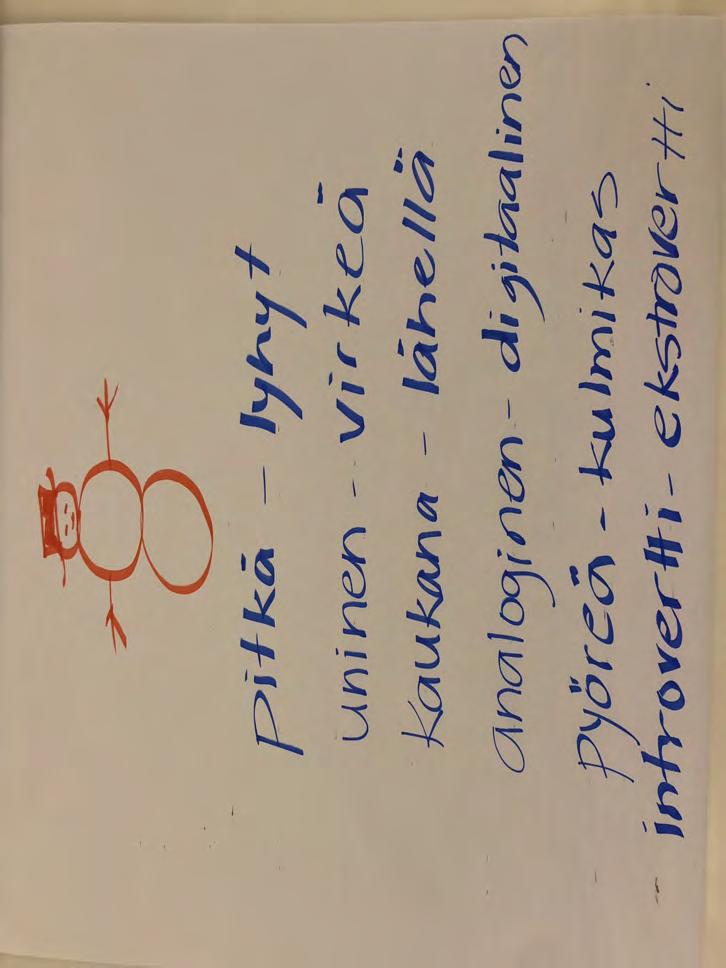 Pitkä - lyhyt
uninen - virkeä
Kaukana - lähellä
analoginen - digitaalinen
Pyöreä - kulmikas
introvertti - ekstrovertti